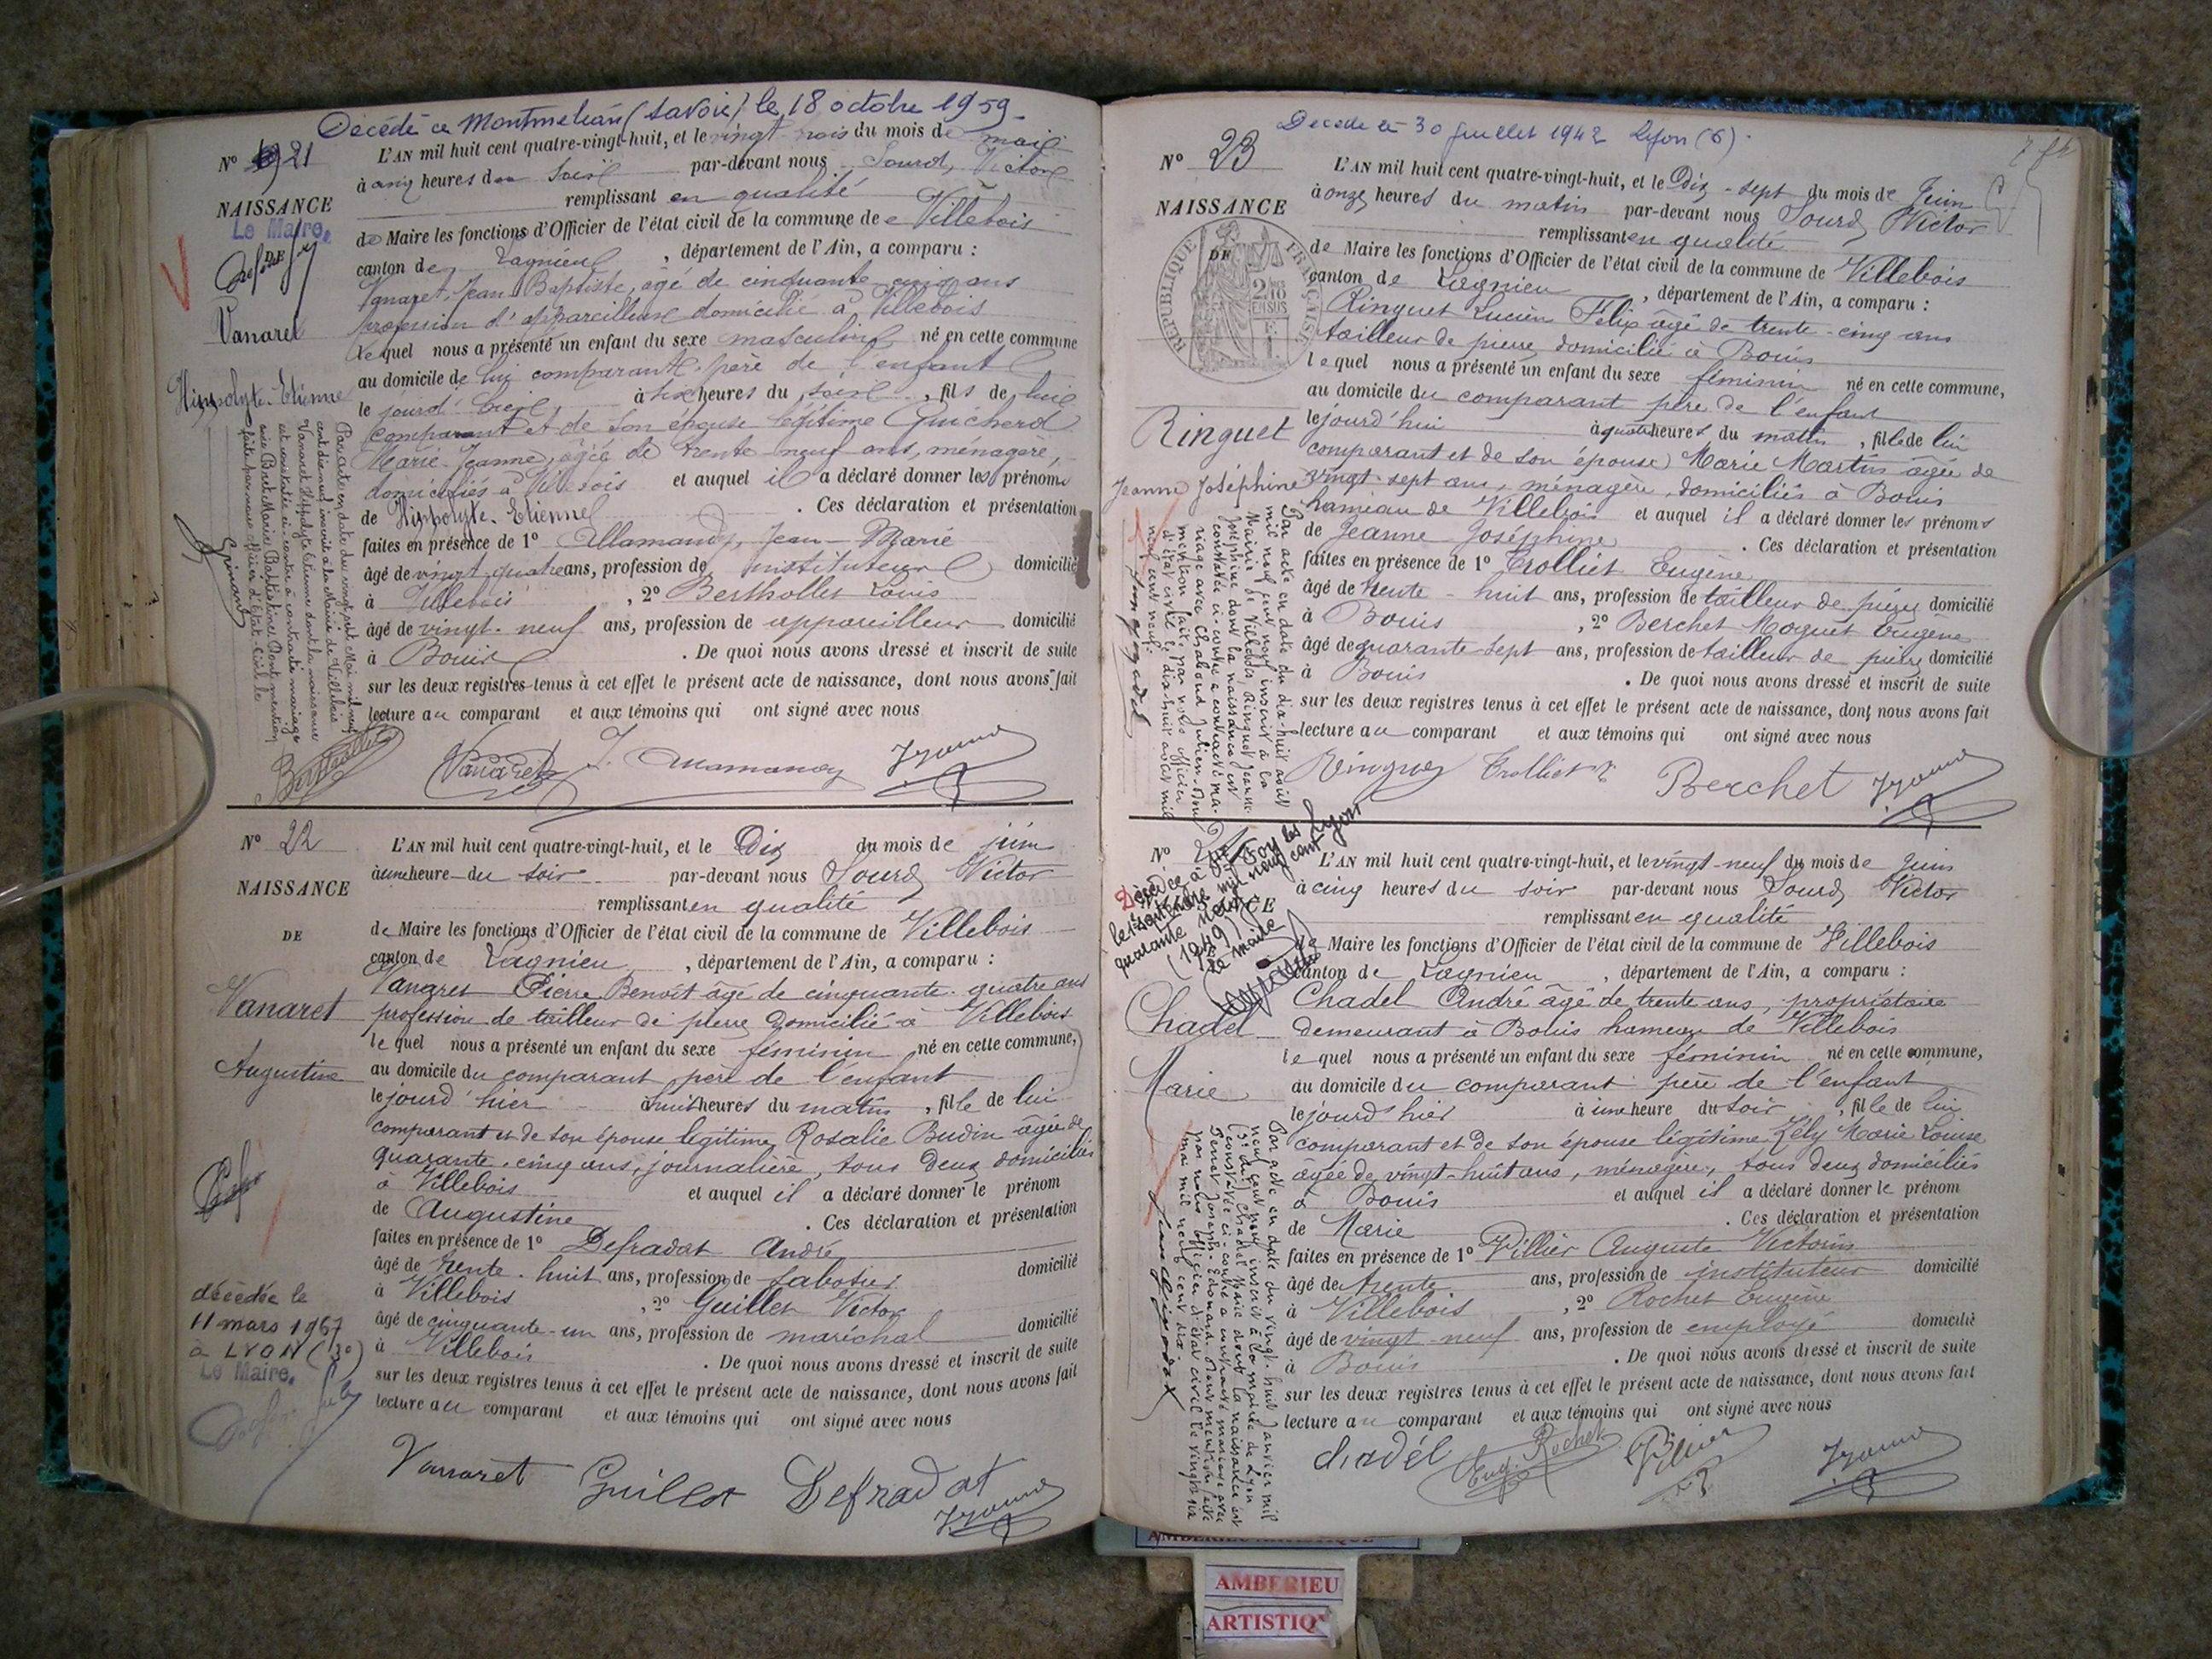 Décédé à Montmélian (Savoie) le 18 octobre 1959
N° 21
NAISSANCE
Le Maire,
DE
Vanaret
Hippolyte-Etienne
L'AN mil huit cent quatre-vingt-huit, et le vingt trois du mois de mai
à cinq heures du soir par-devant nous Sourd, Victor
remplissant en qualité
de Maire les fonctions d'Officier de l'état civil de la commune de Villebois
canton de Lagnieu, département de l'Ain, a comparu :
Vanaret, Jean Baptiste, âgé de cinquante cinq ans
profession d'appareilleur domicilié à Villebois
Lequel nous a présenté un enfant du sexe masculin né en cette commune
au domicile de lui comparant père de l'enfant
le jourd'hier, à six heures du soir, fils de lui
comparant et de son épouse légitime Guicherd
Marie-Jeanne, âgée de trente-neuf ans, ménagère,
domiciliés à Villebois et auquel il a déclaré donner les prénoms
de Hippolyte-Etienne. Ces déclaration et présentation
faites en présence de 1° Allamandy, Jean-Marie
âgé de vingt-quatre ans, profession de instituteur domicilié
à Villebois, 2° Berthollet Louis
âgé de vingt-neuf ans, profession de appareilleur domicilié
à Bouis. De quoi nous avons dressé et inscrit de suite
sur les deux registres tenus à cet effet le présent acte de naissance, dont nous avons fait
lecture au comparant et aux témoins qui ont signé avec nous
Par acte en date du vingt sept Mai mil neuf
cent dix neuf inscrit à la Mairie de Villebois
Vanaret Hippolyte Etienne dont la naissance
est constatée ci-contre à contracté mariage
avec Brot Marie Baptistine Dont mention
faite par nous officier d'Etat-Civil le
Berthollet Vanaret J. Allamandy
N° 22
NAISSANCE
DE
Vanaret
Augustine
décédée le
11 mars 1967
à LYON (3e)
Le Maire,
L'AN mil huit cent quatre-vingt-huit, et le Dix du mois de juin
à une heure du soir par-devant nous Sourd Victor
remplissant en qualité
de Maire les fonctions d'Officier de l'état civil de la commune de Villebois
canton de Lagnieu, département de l'Ain, a comparu :
Vanaret Pierre Benoît âgé de cinquante-quatre ans
profession de tailleur de pierre domicilié à Villebois
lequel nous a présenté un enfant du sexe féminin né en cette commune,
au domicile du comparant père de l'enfant
le jourd'hier à huit heures du matin, fille de lui
comparant et de son épouse légitime Rosalie Budin âgée de
quarante-cinq ans, journalière, tous deux domiciliés
à Villebois et auquel il a déclaré donner le prénom
de Augustine. Ces déclaration et présentation
faites en présence de 1° Defradat André
âgé de trente-huit ans, profession de sabotier domicilié
à Villebois, 2° Guillet Victor
âgé de cinquante-un ans, profession de maréchal domicilié
à Villebois. De quoi nous avons dressé et inscrit de suite
sur les deux registres tenus à cet effet le présent acte de naissance, dont nous avons fait
lecture au comparant et aux témoins qui ont signé avec nous
Vanaret Guillot Defradat
Décédée le 30 Juillet 1942 Lyon (6).
N° 23
NAISSANCE
DE
RÉPUBLIQUE FRANÇAISE
Ringuet
Jeanne Joséphine
L'AN mil huit cent quatre-vingt-huit, et le Dix-sept du mois de Juin
à onze heures du matin par-devant nous Sourd Victor
remplissant en qualité
de Maire les fonctions d'Officier de l'état civil de la commune de Villebois
canton de Lagnieu, département de l'Ain, a comparu :
Ringuet Lucien Felix âgé de trente-cinq ans
tailleur de pierre domicilié à Bouis
lequel nous a présenté un enfant du sexe féminin né en cette commune,
au domicile du comparant père de l'enfant
le jourd'hui à quatre heures du matin, fille de lui
comparant et de son épouse Marie Martin âgée de
vingt-sept ans, ménagère, domiciliés à Bouis
hameau de Villebois et auquel il a déclaré donner les prénoms
de Jeanne Joséphine. Ces déclaration et présentation
faites en présence de 1° Trolliet Eugène
âgé de trente-huit ans, profession de tailleur de pierre domicilié
à Bouis, 2° Berchet Moguet Eugène
âgé de quarante-sept ans, profession de tailleur de pierre domicilié
à Bouis. De quoi nous avons dressé et inscrit de suite
sur les deux registres tenus à cet effet le présent acte de naissance, dont nous avons fait
lecture au comparant et aux témoins qui ont signé avec nous
Par acte en date du dix-huit août
mil neuf cent neuf inscrit à la
Mairie de Villebois, Ringuet Jeanne
Joséphine dont la naissance est
constatée ci-contre a contracté ma-
riage avec Chaboud Julien. Dont
mention faite par nous officier
d'état civil le dix-huit août mil
neuf cent neuf.
Ringuet Trolliet E Berchet
N° 24
NAISSANCE
Décédée à Ste Foy les Lyon
le
quarante neuf
(1949)
Le maire
Chadel
Marie
L'AN mil huit cent quatre-vingt-huit, et le vingt-neuf du mois de Juin
à cinq heures du soir par-devant nous Sourd Victor
remplissant en qualité
de Maire les fonctions d'Officier de l'état civil de la commune de Villebois
canton de Lagnieu, département de l'Ain, a comparu :
Chadel André âgé de trente ans, propriétaire
demeurant à Bouis hameau de Villebois
lequel nous a présenté un enfant du sexe féminin né en cette commune,
au domicile du comparant père de l'enfant
le jourd'hier à une heure du soir, fille de lui
comparant et de son épouse légitime Zély Marie Louise
âgée de vingt-huit ans, ménagère, tous deux domiciliés
à Bouis et auquel il a déclaré donner le prénom
de Marie. Ces déclaration et présentation
faites en présence de 1° Villier Auguste Victorin
âgé de trente ans, profession de instituteur domicilié
à Villebois, 2° Rochet Eugène
âgé de vingt-neuf ans, profession de employé domicilié
à Bouis. De quoi nous avons dressé et inscrit de suite
sur les deux registres tenus à cet effet le présent acte de naissance, dont nous avons fait
lecture au comparant et aux témoins qui ont signé avec nous
Par acte en date du vingt-huit Janvier mil
neuf cent neuf inscrit à la mairie de Lyon
Chadel Marie dont la naissance est
constatée ci-contre a contracté mariage avec
Joseph Edouard. Dont mention faite
par nous officier d'état civil le vingt six
mai mil neuf cent dix.
chadel Eug. Rochet Villier
AMBERIEU
ARTISTIQ